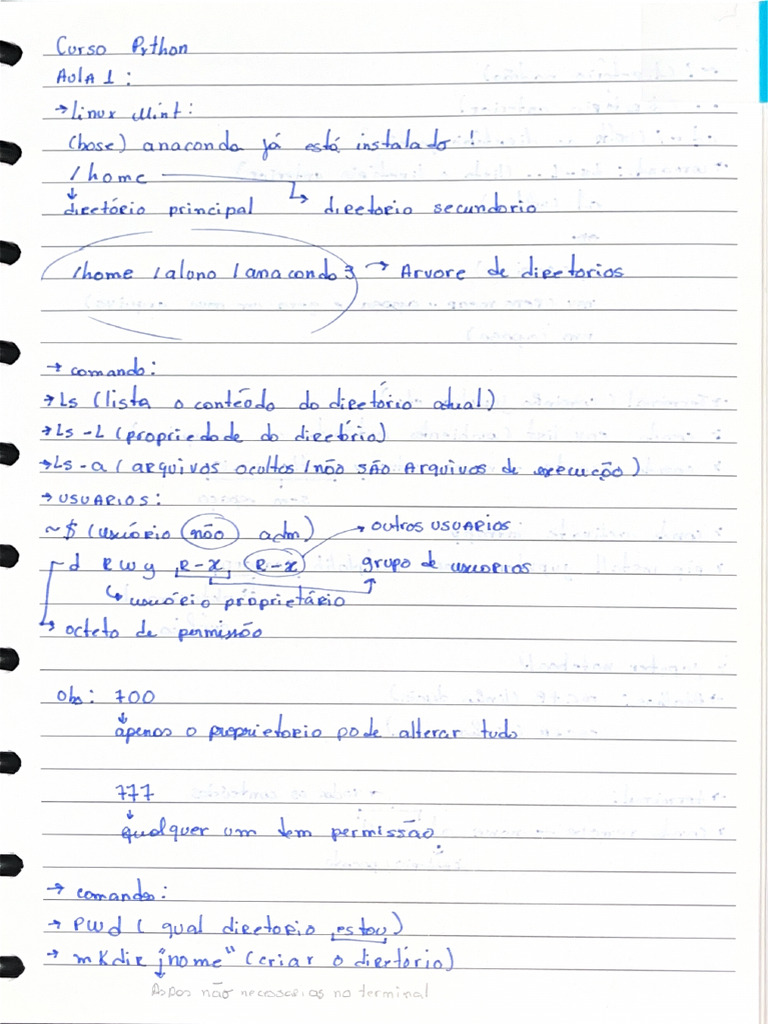 Curso Python
Aula 1:
→ linux Mint:
(base) anaconda já está instalado!
/home
diretório principal ↳ diretorio secundario
/home /aluno /anaconda3 → Arvore de diretorios
→ comando:
→ Ls (lista o conteódo do diretório atual)
→ Ls -L (propriedade do diretório)
→ Ls -a (arquivos ocultos / não são Arquivos de execução)
→ USUARIOS:
~$ (usuório não adm) → outros USUARIOS
d R w y R-x R-x grupo de usuorios
↳ usuório próprietário
→ octeto de permissão
Obs: 700
↓
apenas o proprietorio pode alterar tudo
777
↓
qualquer um tem permissão.
→ comandos:
→ PWd ( qual diretorio estou)
→ mKdir "nome" (criar o diretório)
Aspas não necessarias no terminal